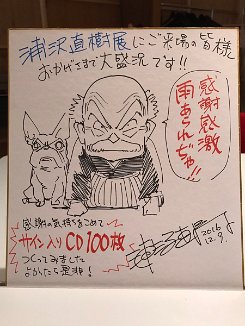 浦沢直樹展にご来場の皆様
おかげさまで大盛況です!!
感謝感激
雨あられぢゃ!!
感謝の気持ちをこめて
サイン入りCD100枚
つくってみました
よかったら是非!
2016
12.9.